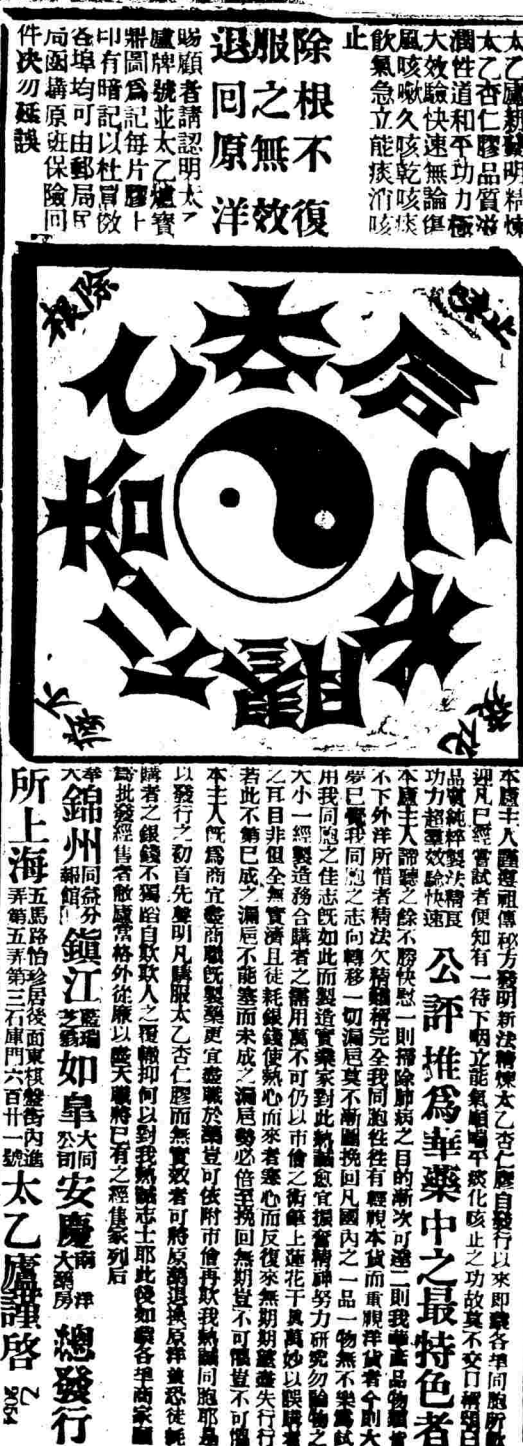 太乙廬新發明精煉
太乙杏仁膠品質滋
潤性道和平功力極
大效驗快速無論傷
風咳嗽久咳乾咳痰
飲氣急立能痰消咳
止
除根不復
服之無效
退回原洋
賜顧者請認明太乙
廬牌號並太乙爐寶
鼎圖爲記每片膠上
印有暗記以杜冒傚
各埠均可由郵局民
局函購原班保險回
件决勿延誤
除根
太乙杏仁膠
本廬主人謹遵祖傳秘方發明新法精煉太乙杏仁膠自發行以來即蒙各界同胞所歡
迎凡已經嘗試者便知有一待下咽立能氣順喘平痰化咳止之功故莫不交口稱頌曰
品質純粹製法精良
功力超羣效驗快速
公評推爲華藥中之最特色者
本廬主人諦聽之餘不勝快慰一則掃除肺病之目的漸次可達二則我華產品物類實
不下外洋所惜者精法欠精鑄稱完全我同胞性徃有輕視本貨而重視洋貨者今則大
夢已覺我同胞之志向轉移一切漏巵莫不漸圖挽回凡國內之一品一物無不樂爲試
用我同胞之佳志旣如此而製造實業家對此熱誠愈宜振奮精神努力研究勿論物之
大小一經製造務合購者之需用萬不可仍以市儈之術筆上蓮花千眞萬妙以誤購者
之耳目非但全無實濟且徒耗銀錢使熱心而來者寒心而反復來無期
若此不第已成之漏巵不能塞而未成之漏巵勢必倍至挽回無期豈不可恨豈不可
本主人旣爲商宜盡商職旣製藥更宜盡職於藥豈可依附市儈再欺我熱誠同胞耶是
以發行之初首先聲明凡購服太乙杏仁膠而無實效者可將原藥退換原洋並恐徒耗
購者之銀錢不獨蹈自欺欺人之覆轍抑何以對我熱誠志士耶此後如蒙各界商家願
爲批發經售者敝廬當格外從廉以盡天職將已有之經售家列后
奉天 錦州 同益分報館 鎭江 藍瑞芝 如皐 大同公司 安慶 南洋大藥房 總發行
所上海 五馬路怡珍居後面東棋盤街內進弄第五弄第三石庫門六百廿一號 太乙廬謹啓